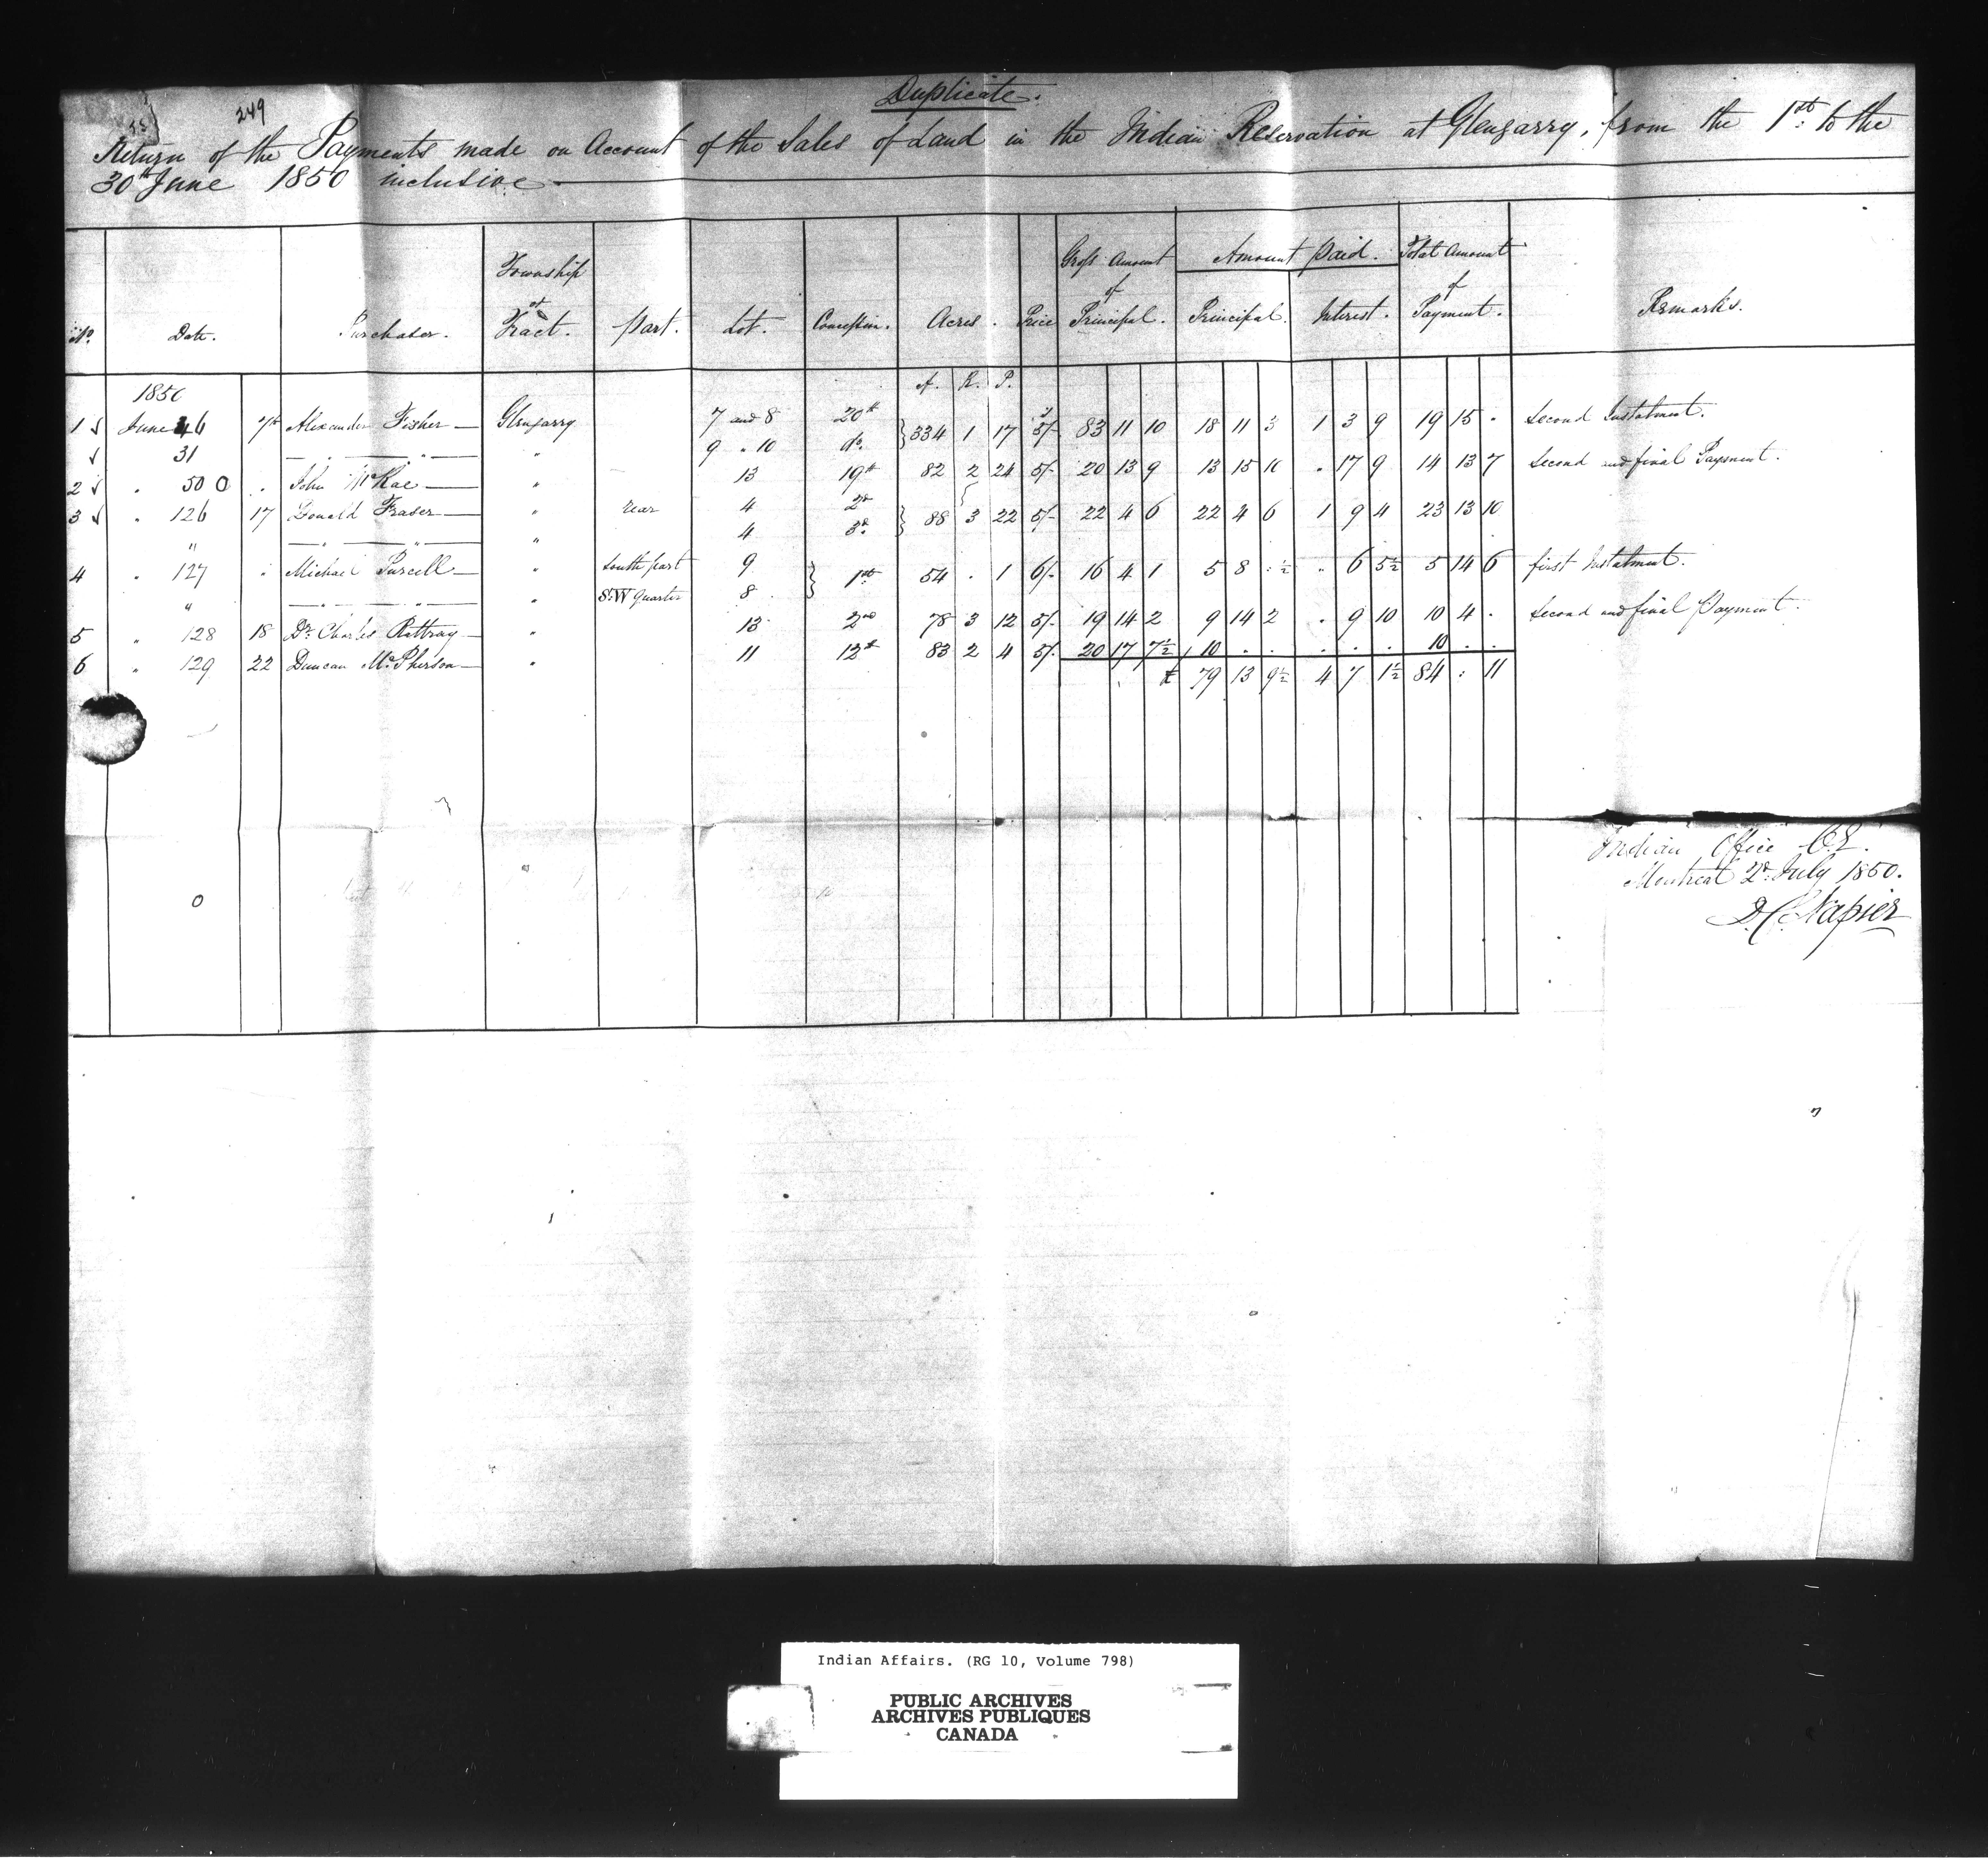 249
Duplicate.
Return of the Payments made on Account of the Sales of Land in the Indian Reservation at Glengarry, from the 1st to the
30th June 1850 inclusive
No. Date. Purchaser. Township or Tract. Part. Lot. Concession. Acres. Price Gross Amount of Principal. Amount Paid. Principal. Interest. Total Amount of Payment. Remarks.
1850 A. R. P.
1 June 46 7th Alexander Fisher — Glengarry 7 and 8 20th } 334 1 17 5/- 83 11 10 18 11 3 1 3 9 19 15 . Second Instalment.
31 — " — " — " 9 " 10 do.
2 " 50 " John McRae — " 13 19th 82 2 24 5/- 20 13 9 13 15 10 . 17 9 14 13 7 Second and final Payment.
3 " 126 17 Donald Fraser — " rear 4 2d } 88 3 22 5/- 22 4 6 22 4 6 1 9 4 23 13 10
" — " — " — " 4 3d.
4 " 127 " Michael Purcell — " South part 9 } 1st 54 . 1 6/- 16 4 1 5 8 . ½ . 6 5½ 5 14 6 first Instalment.
" — " — " — " S.W quarter 8
5 " 128 18 Dr. Charles Rattray — " 13 2nd 78 3 12 5/- 19 14 2 9 14 2 . 9 10 10 4 . Second and final Payment.
6 " 129 22 Duncan McPherson — " 11 12th 83 2 4 5/- 20 17 7½ 10 . . . . . 10 . .
£ 79 13 9½ 4 7 1½ 84 : 11
Indian Office
Montreal 2d. July 1850.
D. C. Napier
Indian Affairs. (RG 10, Volume 798)
PUBLIC ARCHIVES
ARCHIVES PUBLIQUES
CANADA